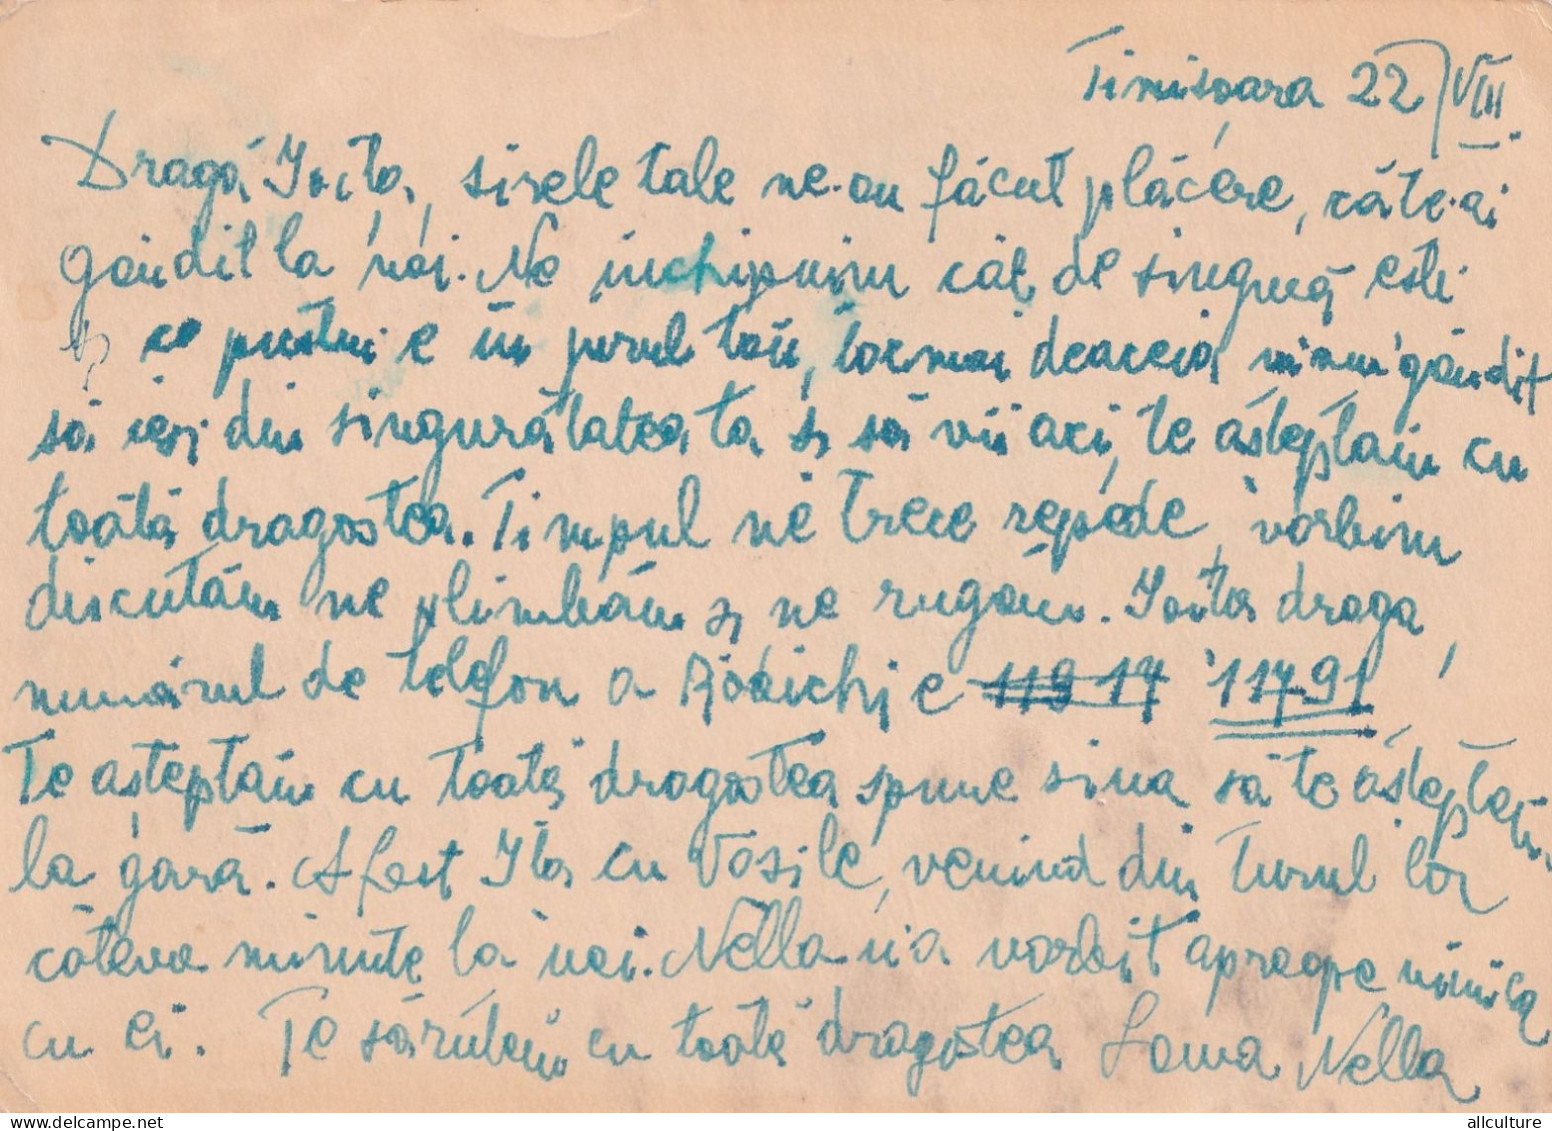 Timișoara 22/VIII.
Dragă Ioița, sirele tale ne-au făcut plăcere, căte-ai
gândit la noi. Ne închipuim cât de singură ești
și ce pustiu e în jurul tău, tocmai deaceia mi-am gândit
să ieși din singurătatea ta și să vii aci, te așteptăm cu
toată dragostea. Timpul ne trece repede, vorbim
discutăm ne plimbăm și ne rugăm. Ioița draga,
numărul de telefon a e 119 17 11791,
Te așteptăm cu toată dragostea spune ziua să te așteptăm
la gară. A fost Ița cu Vasile, venind din turul lor
câteva minute la noi. Nella n-a vorbit aproape nimica
cu ei. Te sărutăm cu toată dragostea Nella
allculture